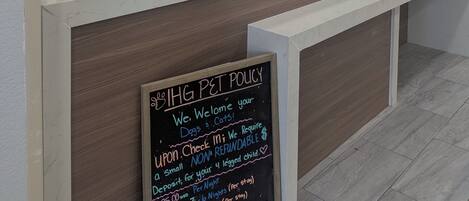 IHG PET POLICY
We, Welcome your
Dogs & Cats!
UPON Check IN; We Require
a small NON REFUNDABLE $
Deposit, for your 4 legged child
Per Night (Per stay)
Nights (Per stay)